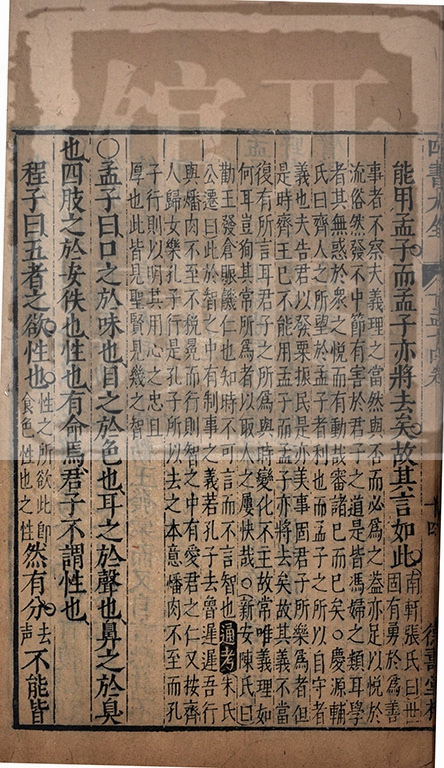 能用孟子而孟子亦將去矣故其言如此南軒張氏曰世固有勇於為善
事者不察夫義理之當然與否而必為之益亦足以悅於
流俗然發不中節有害於君子之道是皆馮婦之類耳學
者其無惑於衆之悅而有動哉審諸己而已矣○慶源輔
氏曰齊人之所望於孟子者利也而孟子之所以自守者
義也夫告君以發粟振民是亦美事固君子所樂為者但
是時齊王已不能用孟子而孟子亦將去矣故其義不當
復有所言耳君子之所為與時變化不主故常唯義理如
何耳豈徇其常所為者以取人之屢快哉○新安陳氏曰
勸王發倉賑饑仁也知時不可言而不言智也通考朱氏
公遷曰此於智之中有制事之義若孔子去魯遲遲吾行
與燔肉不至不稅冕而行則智之中有愛君之仁又按齊
人歸女樂孔子行是孔子所以去之本意燔肉不至而孔
子行則以明其用心之忠且
厚也此皆見聖賢見幾之智
○孟子曰口之於味也目之於色也耳之於聲也鼻之於臭
也四肢之於安佚也性也有命焉君子不謂性也
程子曰五者之欲性也性之所欲此即食色性也之性然有分去聲不能皆
四書大全
十四